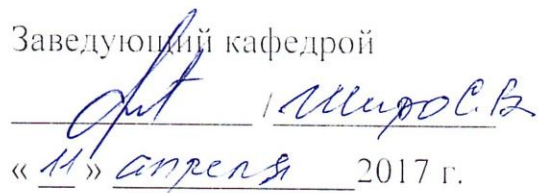 Заведующий кафедрой
/ Широ С.В.
« 11 » апреля 2017 г.